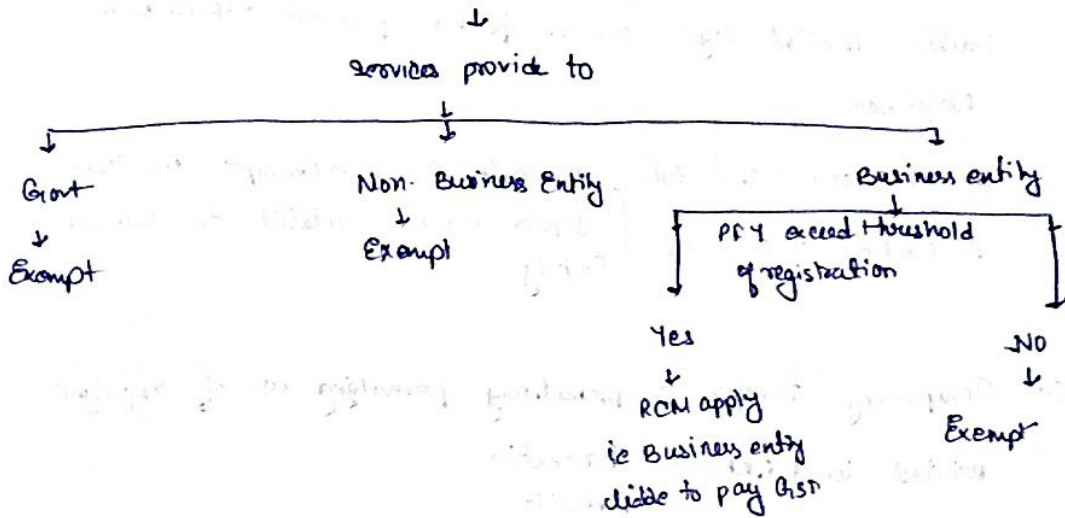 services provide to
Govt
Exempt
Non-Business Entity
Exempt
Business entity
PFY exceed threshold
of registration
Yes
RCM apply
ie Business entity
liable to pay GST
NO
Exempt